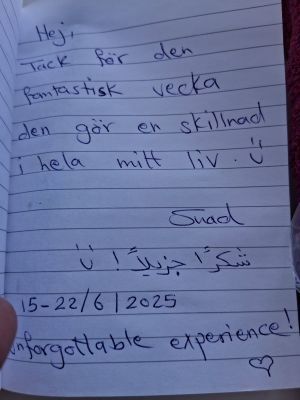 Hej,
Tack för den
fantastisk vecka
den gör en skillnad
i hela mitt liv.
Suad
شكرًا جزيلاً!
15-22/6/2025
unforgottable experience!